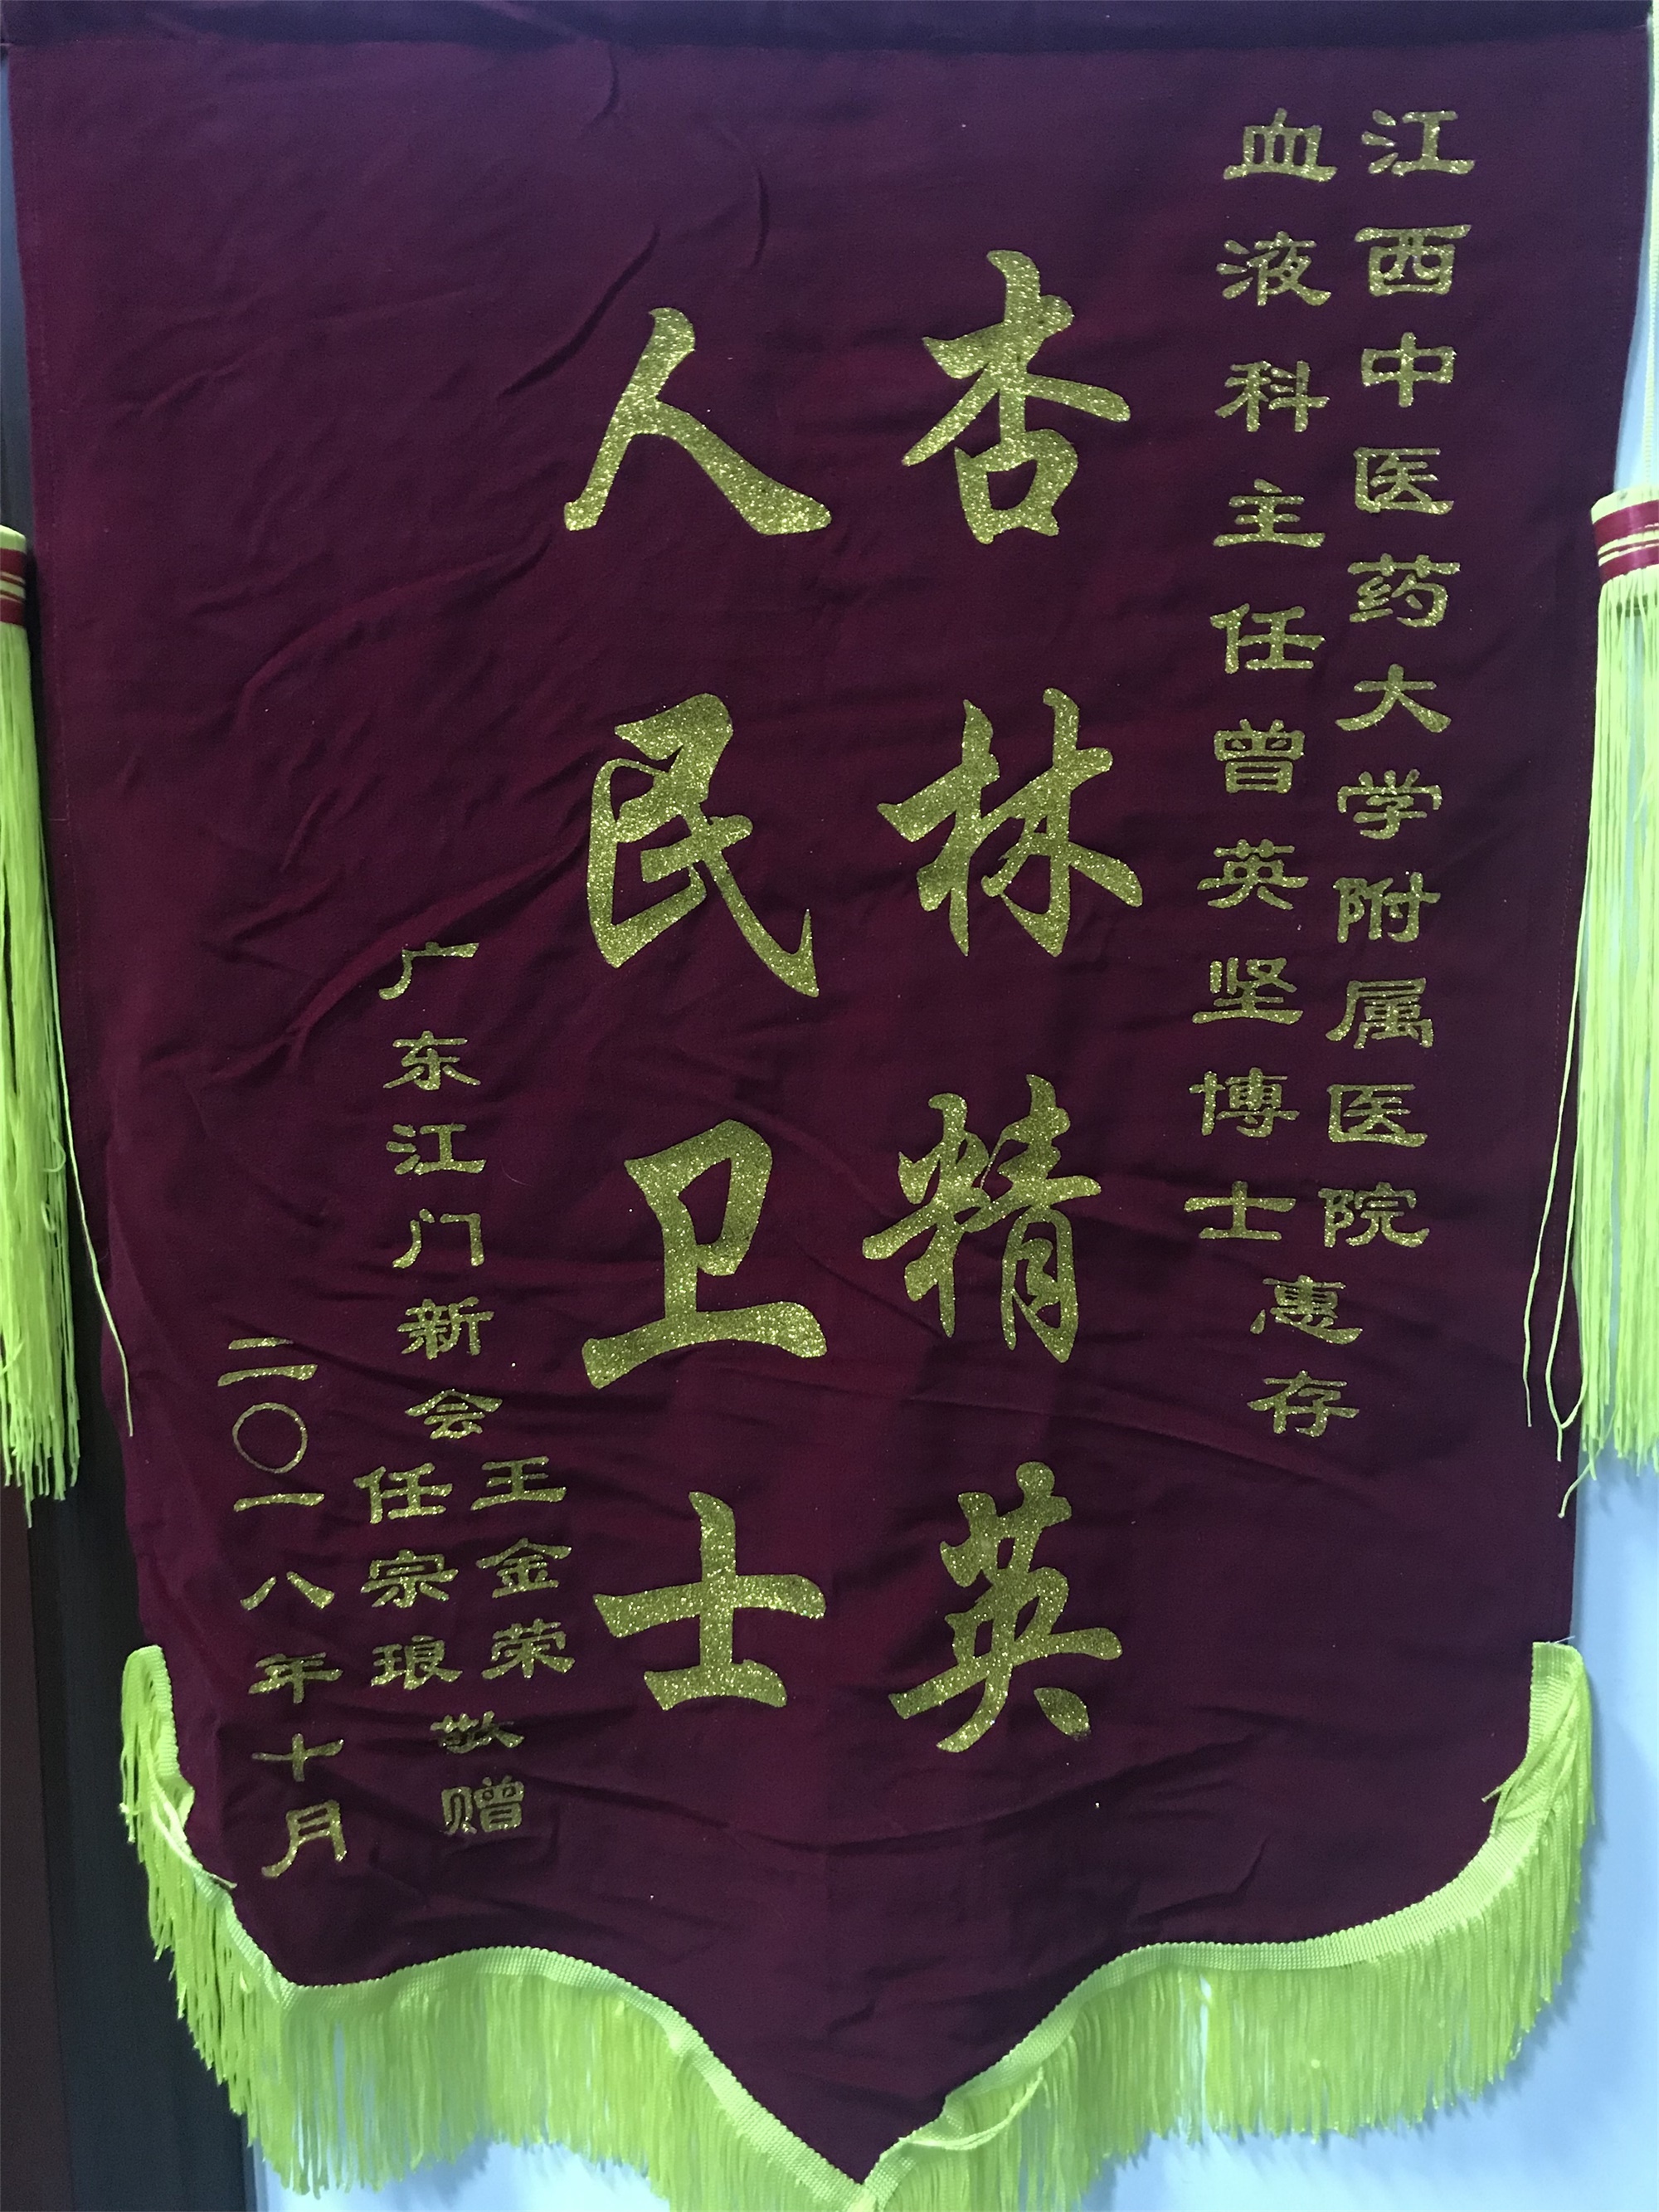 江西中医药大学附属医院
血液科主任曾英坚博士
惠存
杏林精英
人民卫士
广东江门新会
王金荣
任宗琅
敬赠
二〇一八年十月